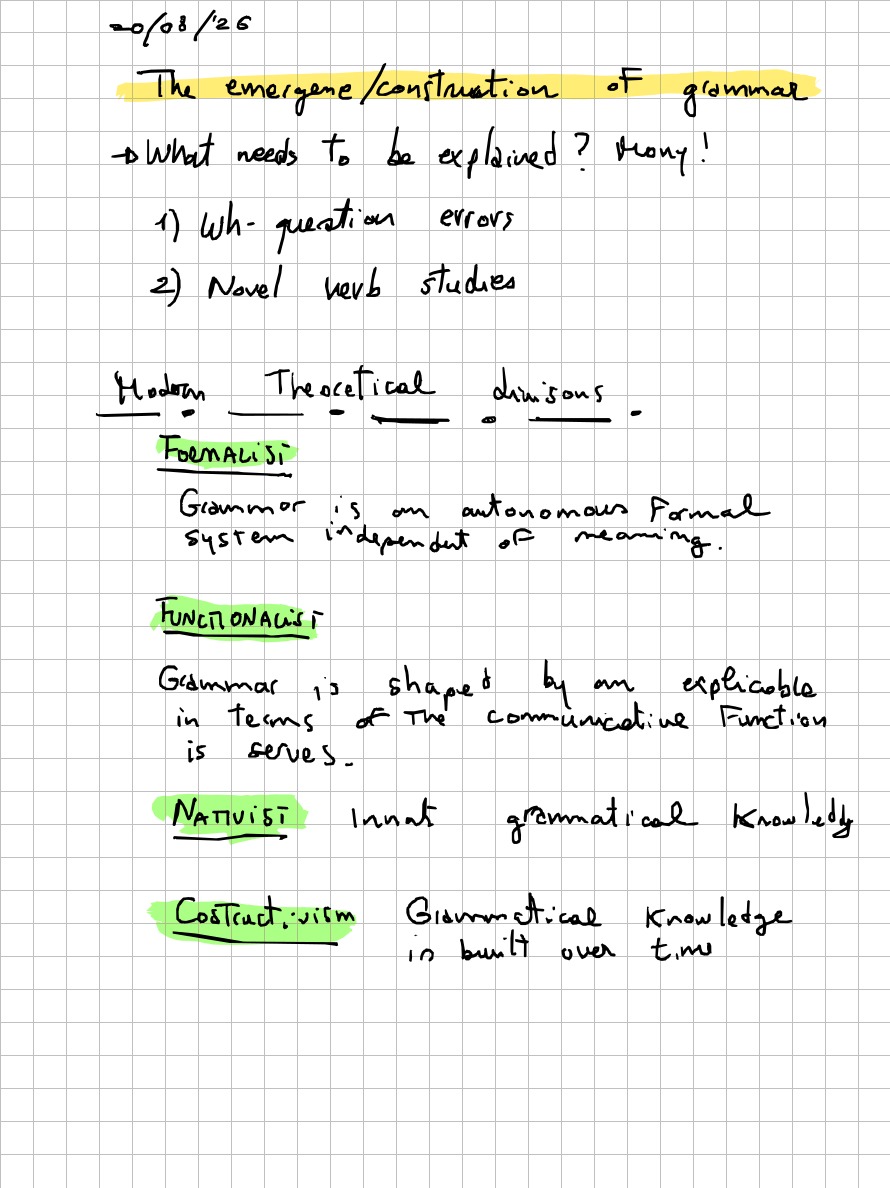 20/03/'26
The emergene/construction of grammar
→ What needs to be explained? Many!
1) Wh- question errors
2) Novel verb studies
Modern Theoretical divisons
FORMALIST
Grammar is an autonomous formal
system independent of meaning.
FUNCTIONALIST
Grammar is shaped by an explicable
in terms of the communicative function
is serves.
NATIVIST Innat grammatical knowledg
Costructivism Grammatical knowledge
is built over time